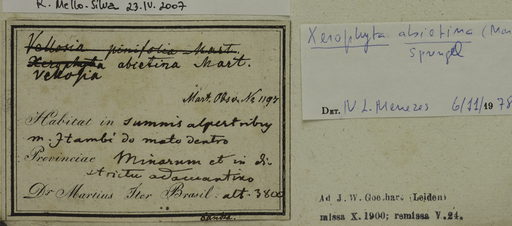 R. Mello-Silva 23.IV.2007
Vellosia pinifolia Mart.
Xerophyta abietina Mart.
Vellosia
Mart. Obs. No 1197
Habitat in summis alpestribus
m. Itambé do mato dentro
Provinciae Minarum et in di-
strictu adamantino
Dr Martius Iter Brasil. alt. 3800
Xerophyta abietina (Mart
Spreng
DET. N L. Menezes 6/11/1978
Ad J. W. Goethart (Leiden)
missa X.1900; remissa V.24.